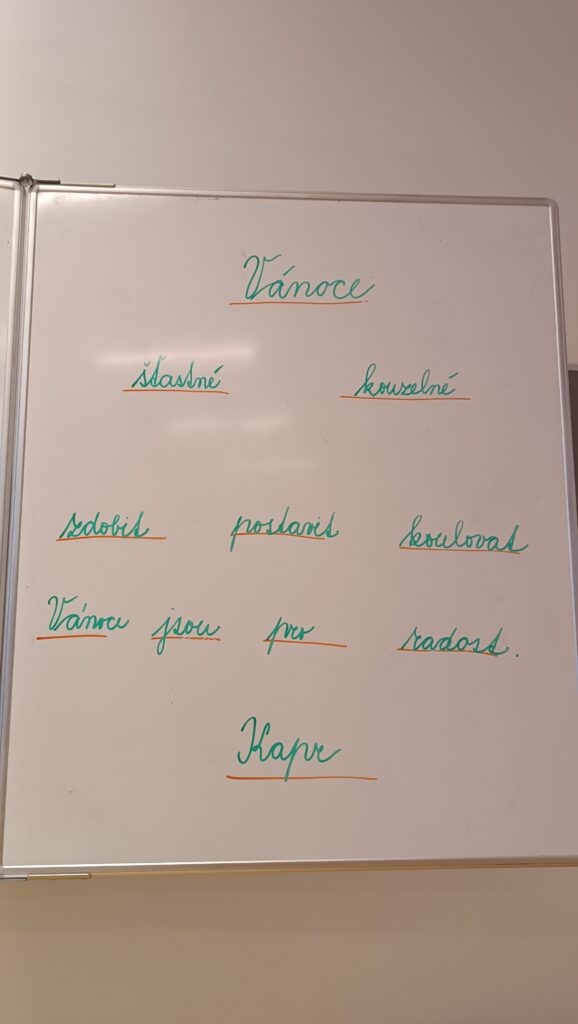 Vánoce
šťastné kouzelné
zdobit postavit koulovat
Vánoce jsou pro radost.
Kapr